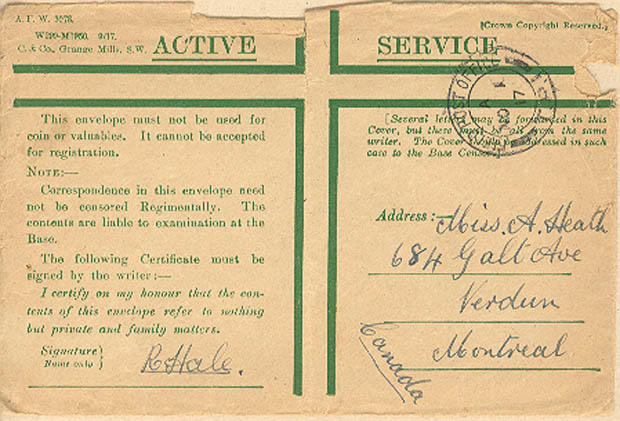 A. F. W. 3078.
[Crown Copyright Reserved.]
C. & Co., Grange Mills, S.W.
ACTIVE SERVICE
POST OFFICE
This envelope must not be used for
coin or valuables. It cannot be accepted
for registration.
NOTE:—
Correspondence in this envelope need
not be censored Regimentally. The
contents are liable to examination at the
Base.
The following Certificate must be
signed by the writer:—
I certify on my honour that the con-
tents of this envelope refer to nothing
but private and family matters.
Signature
Name only
R Hale.
[Several letters may be forwarded in this
Cover, but these must be all from the same
writer. The Cover should be addressed in such
case to the Base Censor.]
Address:—
Miss. A. Heath
684 Galt Ave
Verdun
Montreal
Canada